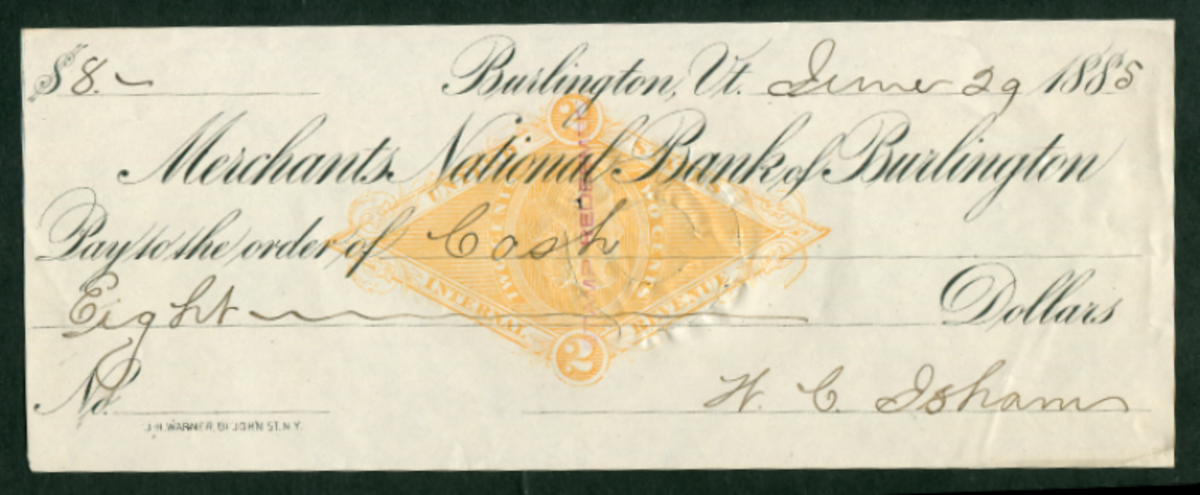 $ 8. ~ Burlington, Vt. June 29 1885
Merchants National Bank of Burlington
Pay to the order of Cash
Eight Dollars
No. W. C. Isham
J.H. WARNER, 61 JOHN ST. N.Y.
2
UNITED STATES
INTERNAL REVENUE
TWO CENTS
STAMP REDEEMED
2